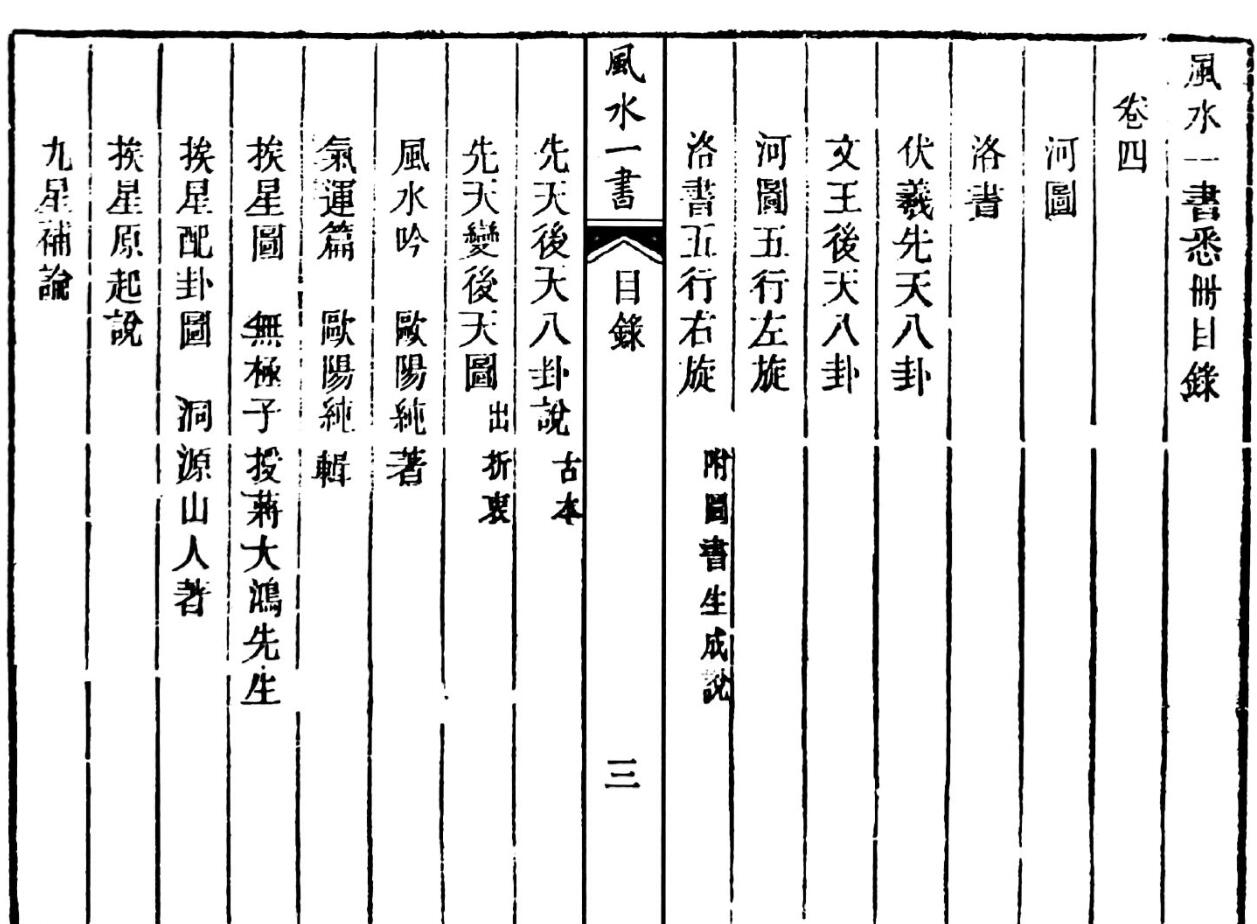 風水一書悉冊目錄
卷四
河圖
洛書
伏羲先天八卦
文王後天八卦
河圖五行左旋
洛書五行右旋 附圖書生成說
風水一書 目錄 三
先天後天八卦說 古本
先天變後天圖 出折衷
風水吟 歐陽純著
氣運篇 歐陽純輯
挨星圖 無極子授蔣大鴻先生
挨星配卦圖 洞源山人著
挨星原起說
九星補說